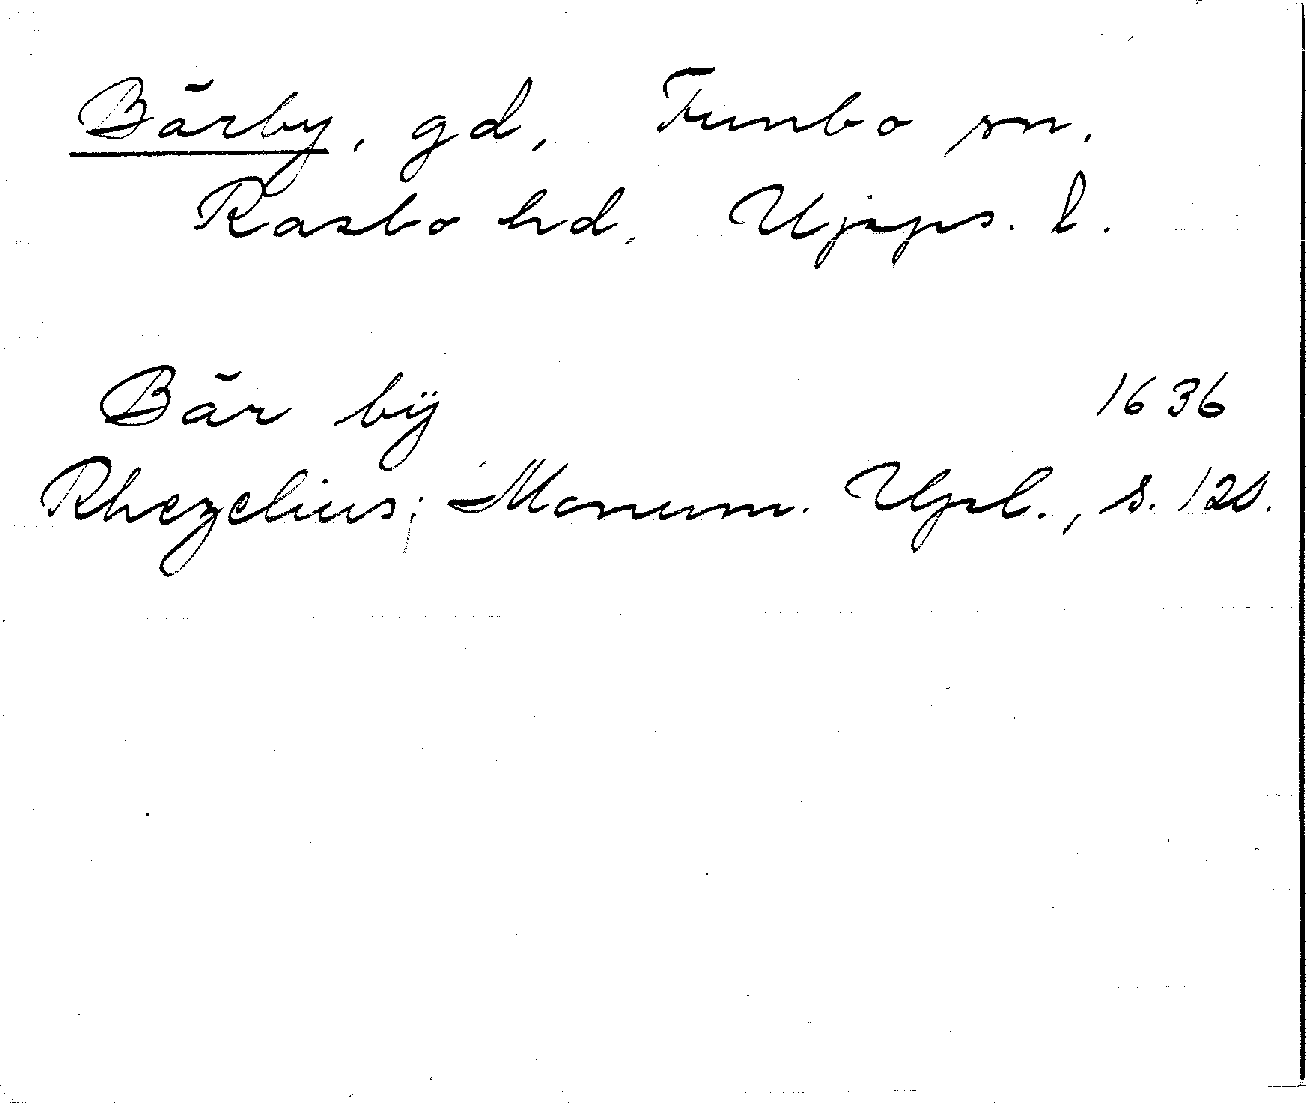 Bärby, gd, Funbo sn.
Rasbo hd, Upps. l.
Bär bÿ 1636
Rhezelius; Monum. Upl., s. 120.